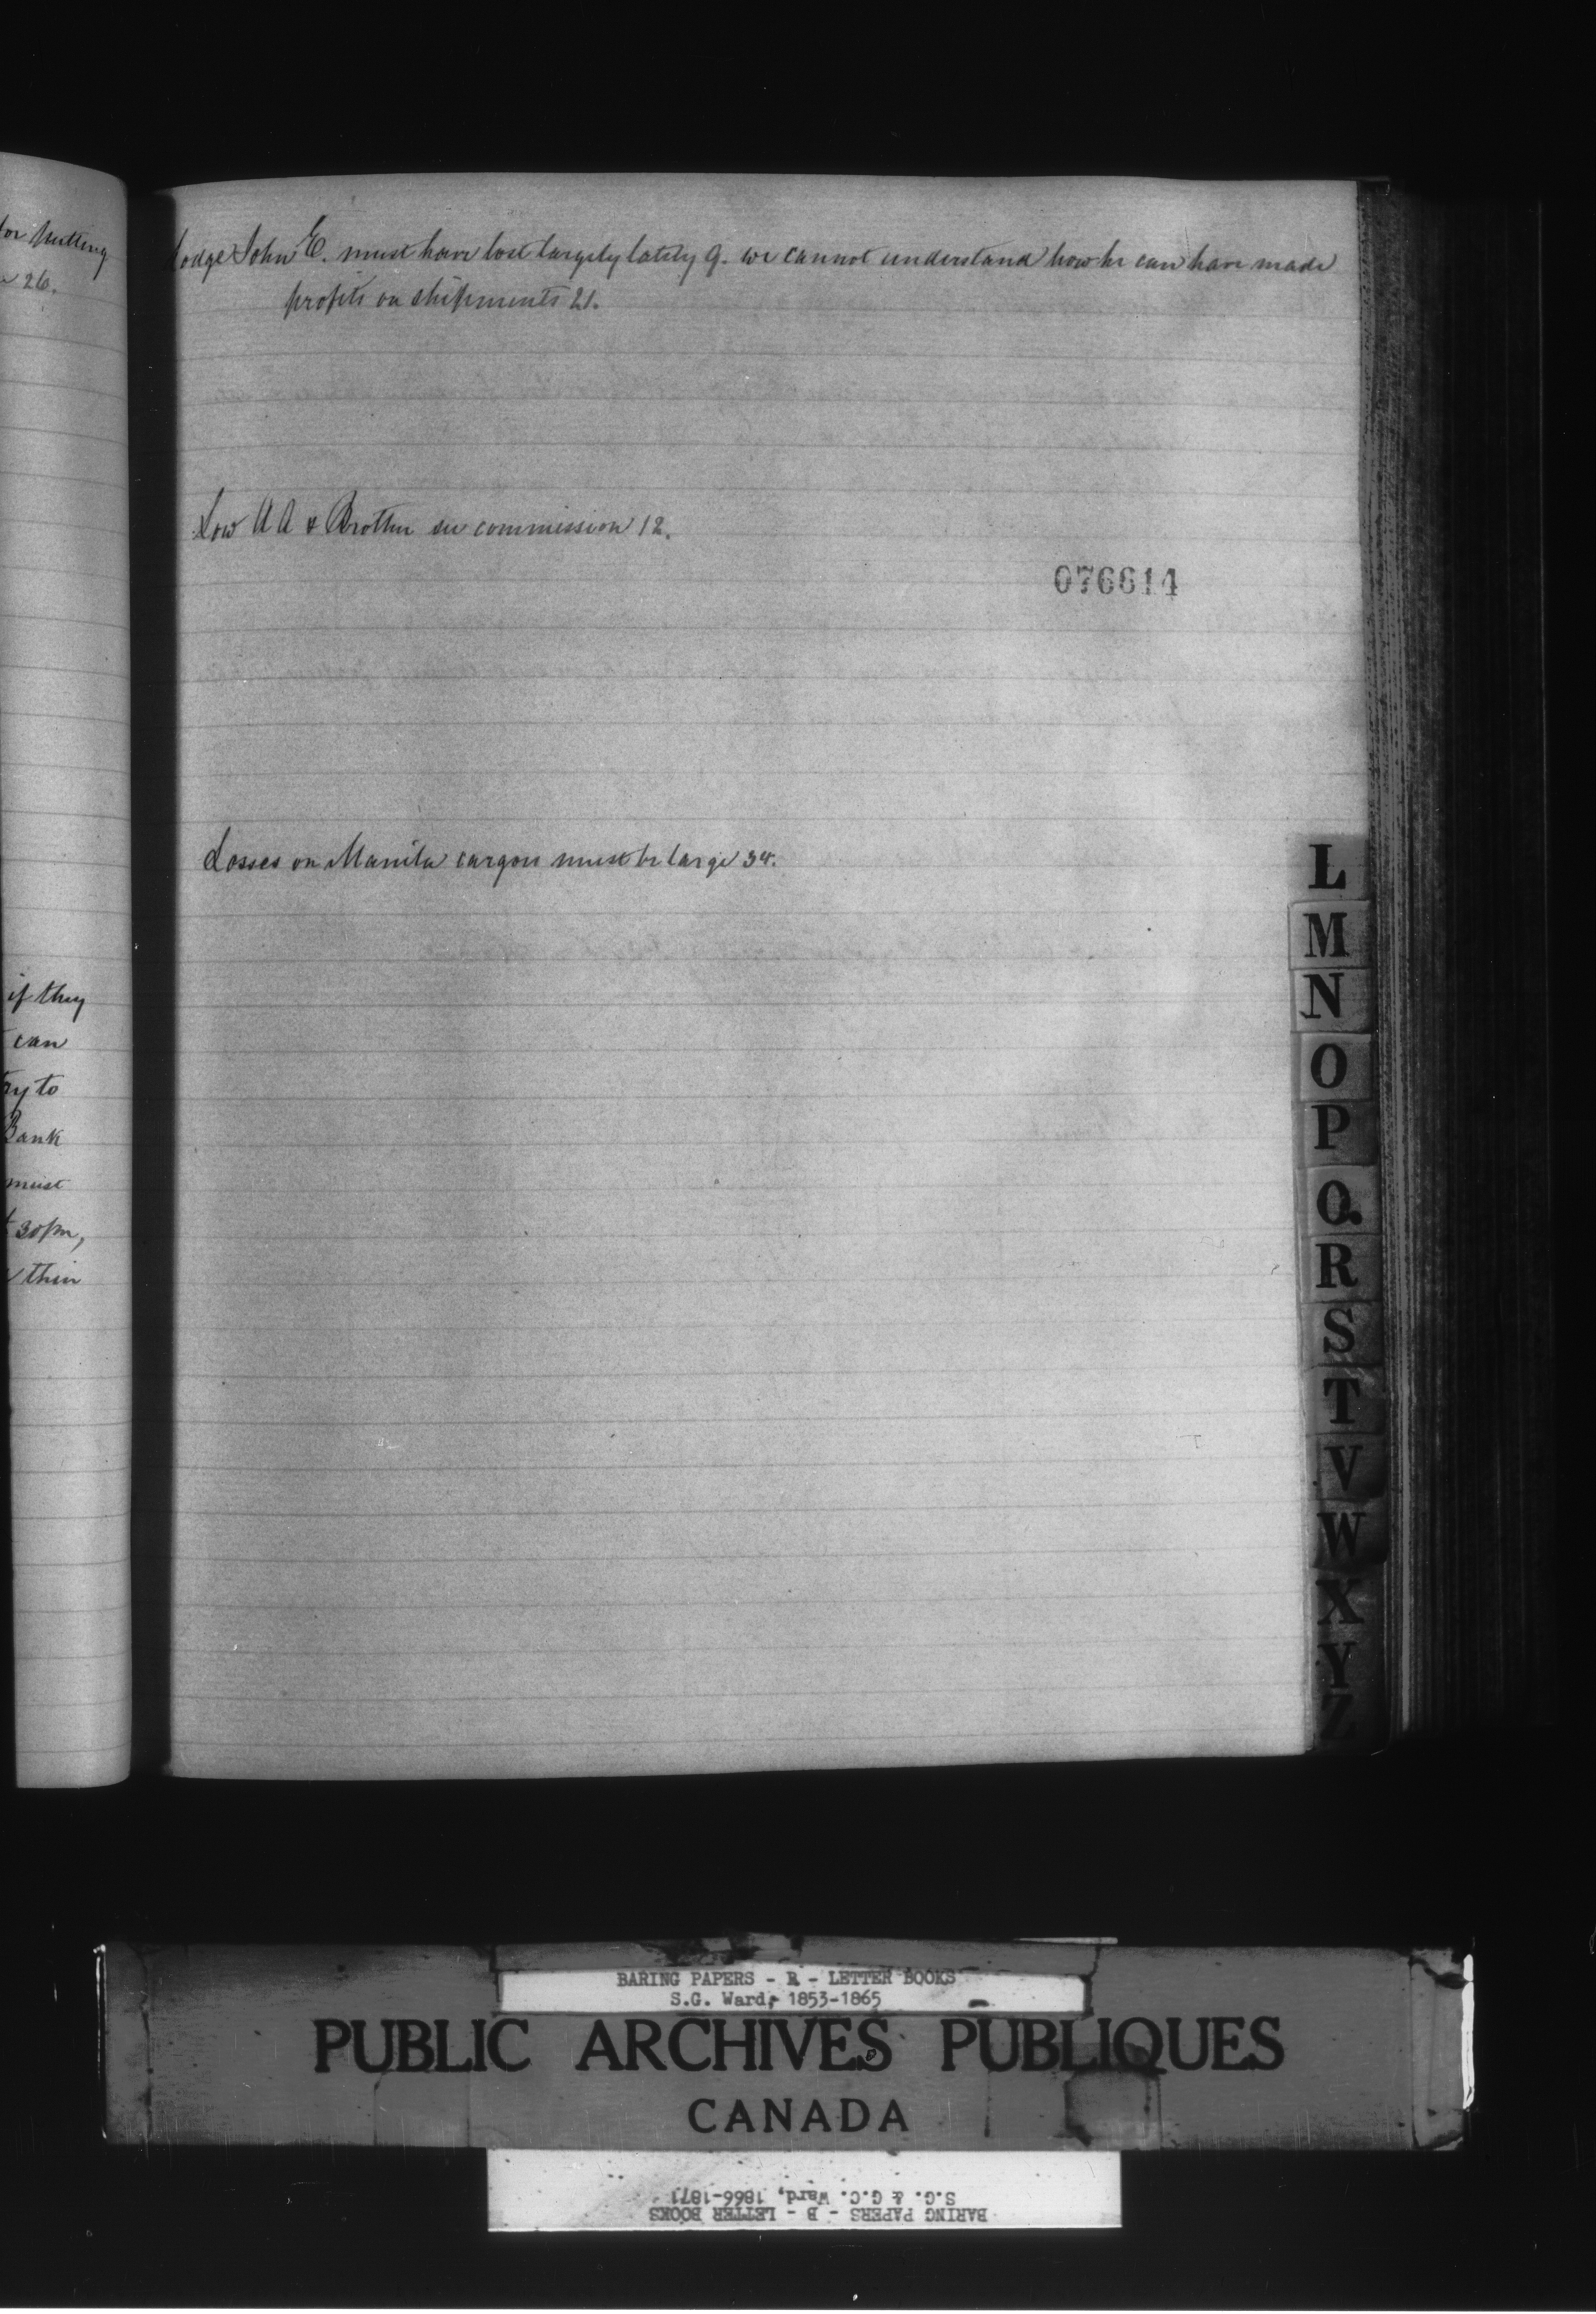 for Nutting
26.
if they
can
try to
Bank
must
30pm,
then
Lodge John E. must have lost largely lately 9. we cannot understand how he can have made
profits on shipments 21.
Low A A & Brother see commission 12.
076614
Losses on Manila cargoes must be large 34.
L
M
N
O
P
Q
R
S
T
V
W
X
Y
Z
BARING PAPERS - B - LETTER BOOKS
S.G. Ward, 1853-1865
PUBLIC ARCHIVES PUBLIQUES
CANADA
BARING PAPERS - B - LETTER BOOKS
S.G. & G.C. Ward, 1866-1871